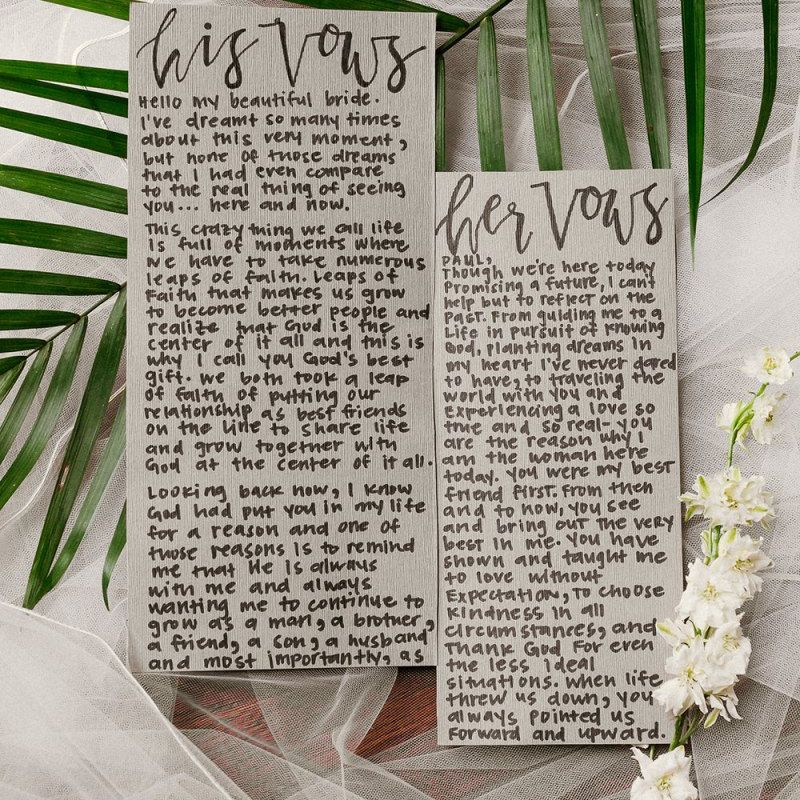 his Vows
Hello my beautiful bride.
I've dreamt so many times
about this very moment,
but none of those dreams
that I had even compare
to the real thing of seeing
you... here and now.
This crazy thing we call life
is full of moments where
we have to take numerous
leaps of faith. Leaps of
Faith that makes us grow
to become better people and
realize that God is the
center of it all and this is
why I call you God's best
gift. We both took a leap
of faith of putting our
relationship as best friends
on the line to share life
and grow together with
God at the center of it all.
Looking back now, I know
God had put you in my life
for a reason and one of
those reasons is to remind
me that He is always
with me and always
wanting me to continue to
grow as a man, a brother,
a friend, a son, a husband
and most importantly, as
her Vows
PAUL,
Though we're here today
Promising a future, I can't
help but to reflect on the
past. From guiding me to a
Life in pursuit of knowing
God, planting dreams in
my heart I've never dared
to have, to traveling the
world with you and
experiencing a love so
true and so real- you
are the reason why I
am the woman here
today. You were my best
friend first. From then
and to now, you see
and bring out the very
best in me. You have
shown and taught me
to love without
Expectation, to choose
kindness in all
circumstances, and
Thank God for even
the less ideal
situations. When life
threw us down, you
always pointed us
Forward and upward.